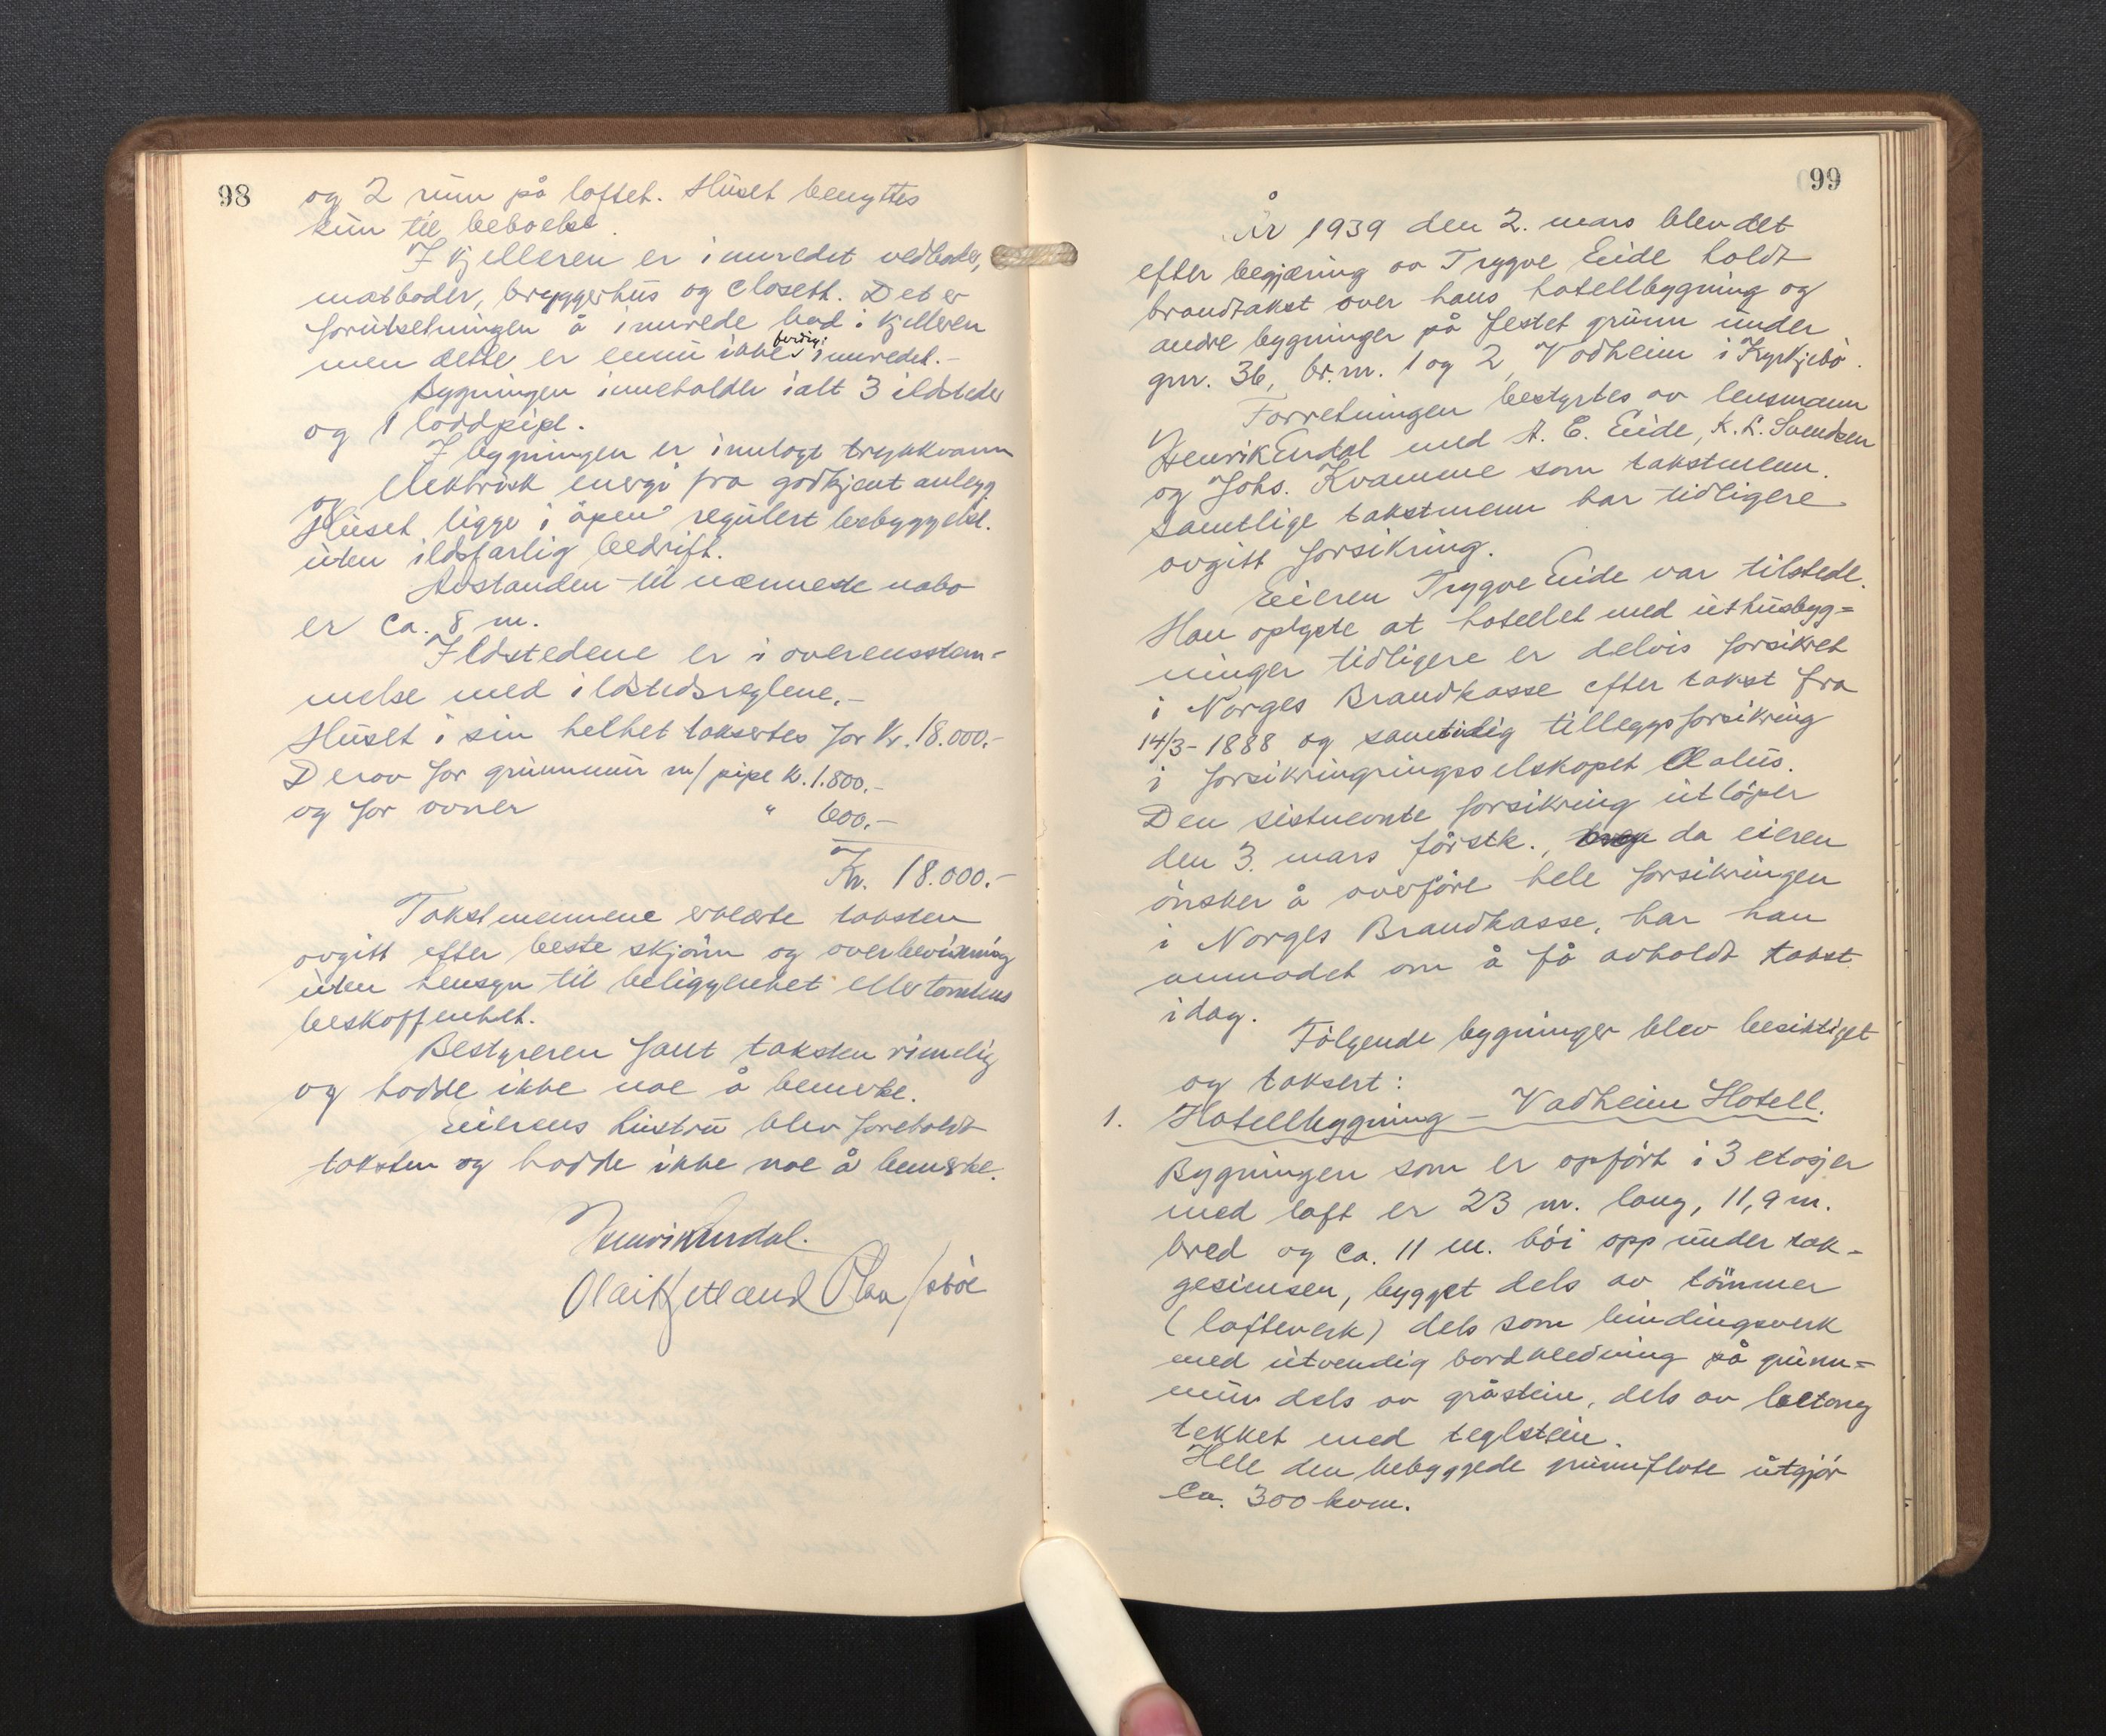 98
og 2 rum på loftet. Huset benyttes
kun til beboelse.
I kjelleren er innredet vedboder,
matboder, bryggerhus og closett. Det er
forutsetningen å innrede bad i kjelleren
men dette er ennu ikke ferdig innredet.-
Bygningen inneholder ialt 3 ildsteder
og 1 loddpipe.
I bygningen er innlagt trykkvann
og elektrisk energi fra godkjent anlegg.
Huset ligge i åpen regulert bebyggelse.
uten ildsfarlig bedrift.
Avstanden til nærmeste nabo
er ca. 8 m.
Ildstedene er i overensstem-
melse med ildstedsreglene.-
Huset i sin helhet taksertes for kr. 18.000.-
Derav for grunnmur m/ pipe kr. 1.800.-
og for ovner " 600.-
Kr. 18.000.-
Takstmennene erklærte taksten
avgitt efter beste skjönn og overbevisning
uten hensyn til beliggenhet eller tomtens
beskaffenhet.
Bestyreren fant taksten rimelig
og hadde ikke noe å bemerke.
Eierens hustru blev foreholdt
taksten og hadde ikke noe å bemerke.
Henrik Endal.
Olai Hetland
99
År 1939 den 2. mars blev det
efter begjæring av Trygve Eide holdt
brandtakst over hans hotellbygning og
andre bygninger på festet grunn under
gnr. 36, br.nr. 1 og 2, Vadheim i Kyrkjebö.
Forretningen bestyrtes av lensmann
Henrik Endal med A. E. Eide, K. L. Svendsen
og Johs. Kvamme som takstmenn.
Samtlige takstmenn har tidligere
avgitt forsikring.
Eieren Trygve Eide var tilstede.
Han oplyste at hotellet med uthusbyg=
ninger tidligere er delvis forsikret
i Norges Brandkasse efter takst fra
14/3-1888 og samtidig tilleggsforsikring
i forsikringringsselskapet Æolus.
Den sistnevnte forsikring utlöper
den 3. mars förstk., da eieren
önsker å overföre hele forsikringen
i Norges Brandkasse, har han
anmodet om å få avholdt takst
idag.
Fölgende bygninger blev besiktiget
og taksert:
1. Hotellbygning - Vadheim Hotell.
Bygningen som er opfört i 3 etasjer
med loft er 23 m. lang, 11,9 m.
bred og ca. 11 m. höi opp under tak-
gesimsen, bygget dels av tömmer
(lafteverk) dels som bindingsverk
med utvendig bordkledning på grunn=
mur dels av gråstein, dels av betong
tekket med teglstein.
Hele den bebyggede grunnflate utgjör
ca. 300 kvm.